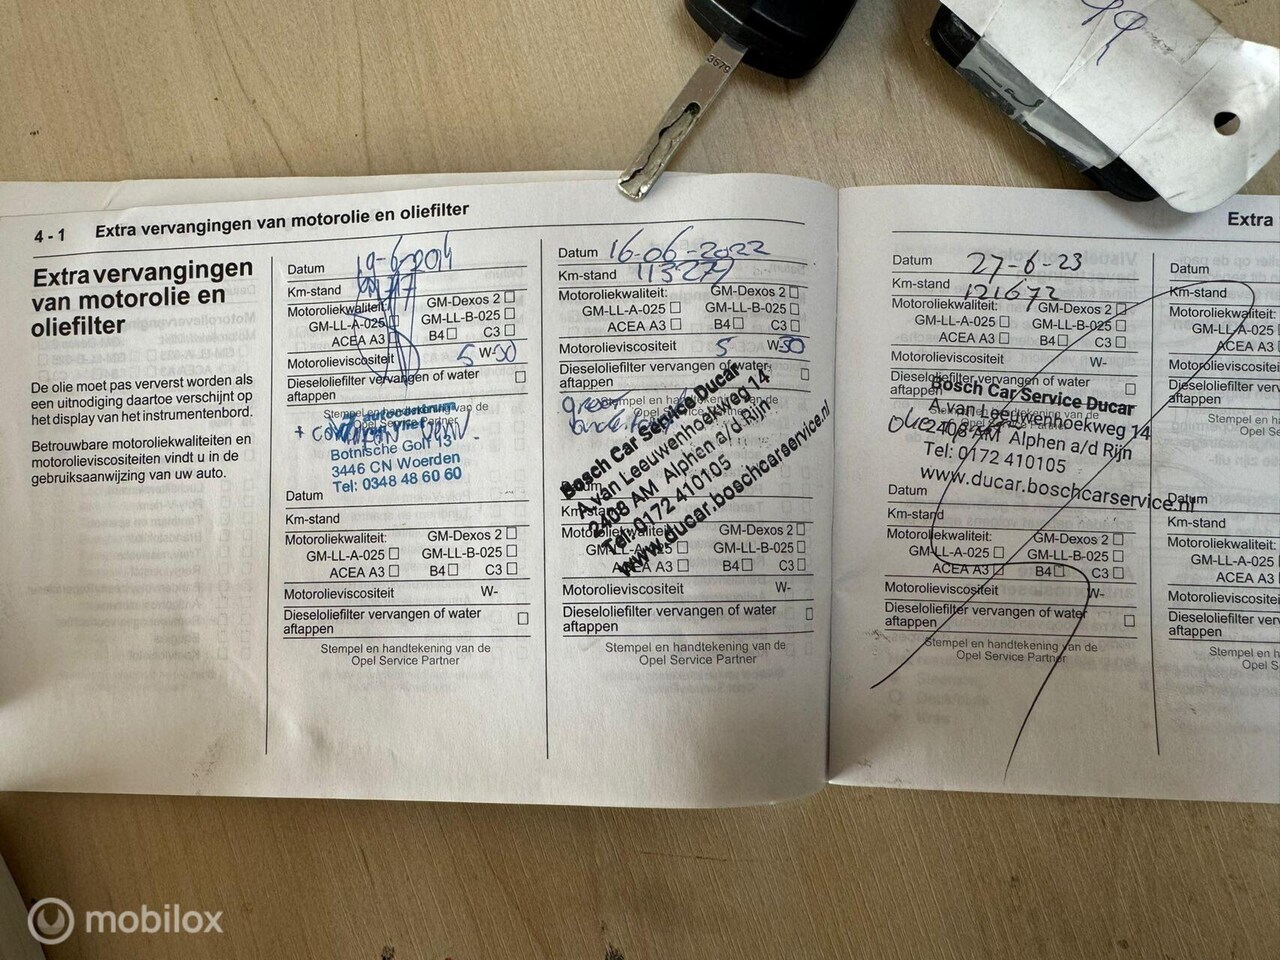 3679
4 - 1 Extra vervangingen van motorolie en oliefilter
Extra vervangingen
van motorolie en
oliefilter
De olie moet pas ververst worden als
een uitnodiging daartoe verschijnt op
het display van het instrumentenbord.
Betrouwbare motoroliekwaliteiten en
motorolieviscositeiten vindt u in de
gebruiksaanwijzing van uw auto.
Datum 19-6-2014
Km-stand
Motoroliekwaliteit: GM-Dexos 2
GM-LL-A-025 GM-LL-B-025
ACEA A3 B4 C3
Motorolieviscositeit 5 W-30
Dieseloliefilter vervangen of water
aftappen
Stempel en handtekening van de
Opel Service Partner
autocentrum
Botnische Golf 13
3446 CN Woerden
Tel: 0348 48 60 60
Datum
Km-stand
Motoroliekwaliteit: GM-Dexos 2
GM-LL-A-025 GM-LL-B-025
ACEA A3 B4 C3
Motorolieviscositeit W-
Dieseloliefilter vervangen of water
aftappen
Stempel en handtekening van de
Opel Service Partner
Datum 16-06-2022
Km-stand 113277
Motoroliekwaliteit: GM-Dexos 2
GM-LL-A-025 GM-LL-B-025
ACEA A3 B4 C3
Motorolieviscositeit 5 W-30
Dieseloliefilter vervangen of water
aftappen
Stempel en handtekening van de
Opel Service Partner
groot
Bosch Car Service Ducar
A van Leeuwenhoekweg 14
2408 AM Alphen a/d Rijn
Tel: 0172 410105
www.ducar.boschcarservice.nl
Datum
Km-stand
Motoroliekwaliteit: GM-Dexos 2
GM-LL-A-025 GM-LL-B-025
ACEA A3 B4 C3
Motorolieviscositeit W-
Dieseloliefilter vervangen of water
aftappen
Stempel en handtekening van de
Opel Service Partner
Extra
Datum 27-6-23
Km-stand 121672
Motoroliekwaliteit: GM-Dexos 2
GM-LL-A-025 GM-LL-B-025
ACEA A3 B4 C3
Motorolieviscositeit W-
Dieseloliefilter vervangen of water
aftappen
Stempel en handtekening van de
Bosch Car Service Ducar
A van Leeuwenhoekweg 14
2408 AM Alphen a/d Rijn
Tel: 0172 410105
www.ducar.boschcarservice.nl
Datum
Km-stand
Motoroliekwaliteit: GM-Dexos 2
GM-LL-A-025 GM-LL-B-025
ACEA A3 B4 C3
Motorolieviscositeit W-
Dieseloliefilter vervangen of water
aftappen
Stempel en handtekening van de
Opel Service Partner
Datum
Km-stand
Motoroliekwaliteit:
GM-LL-A-025
ACEA A3
Motorolieviscositeit
Dieseloliefilter ve
aftappen
Stempel en h
Opel S
Datum
Km-stand
Motoroliekwaliteit:
GM-LL-A-025
ACEA A3
Motorolieviscositeit
Dieseloliefilter ve
aftappen
Stempel en h
Opel S
mobilox